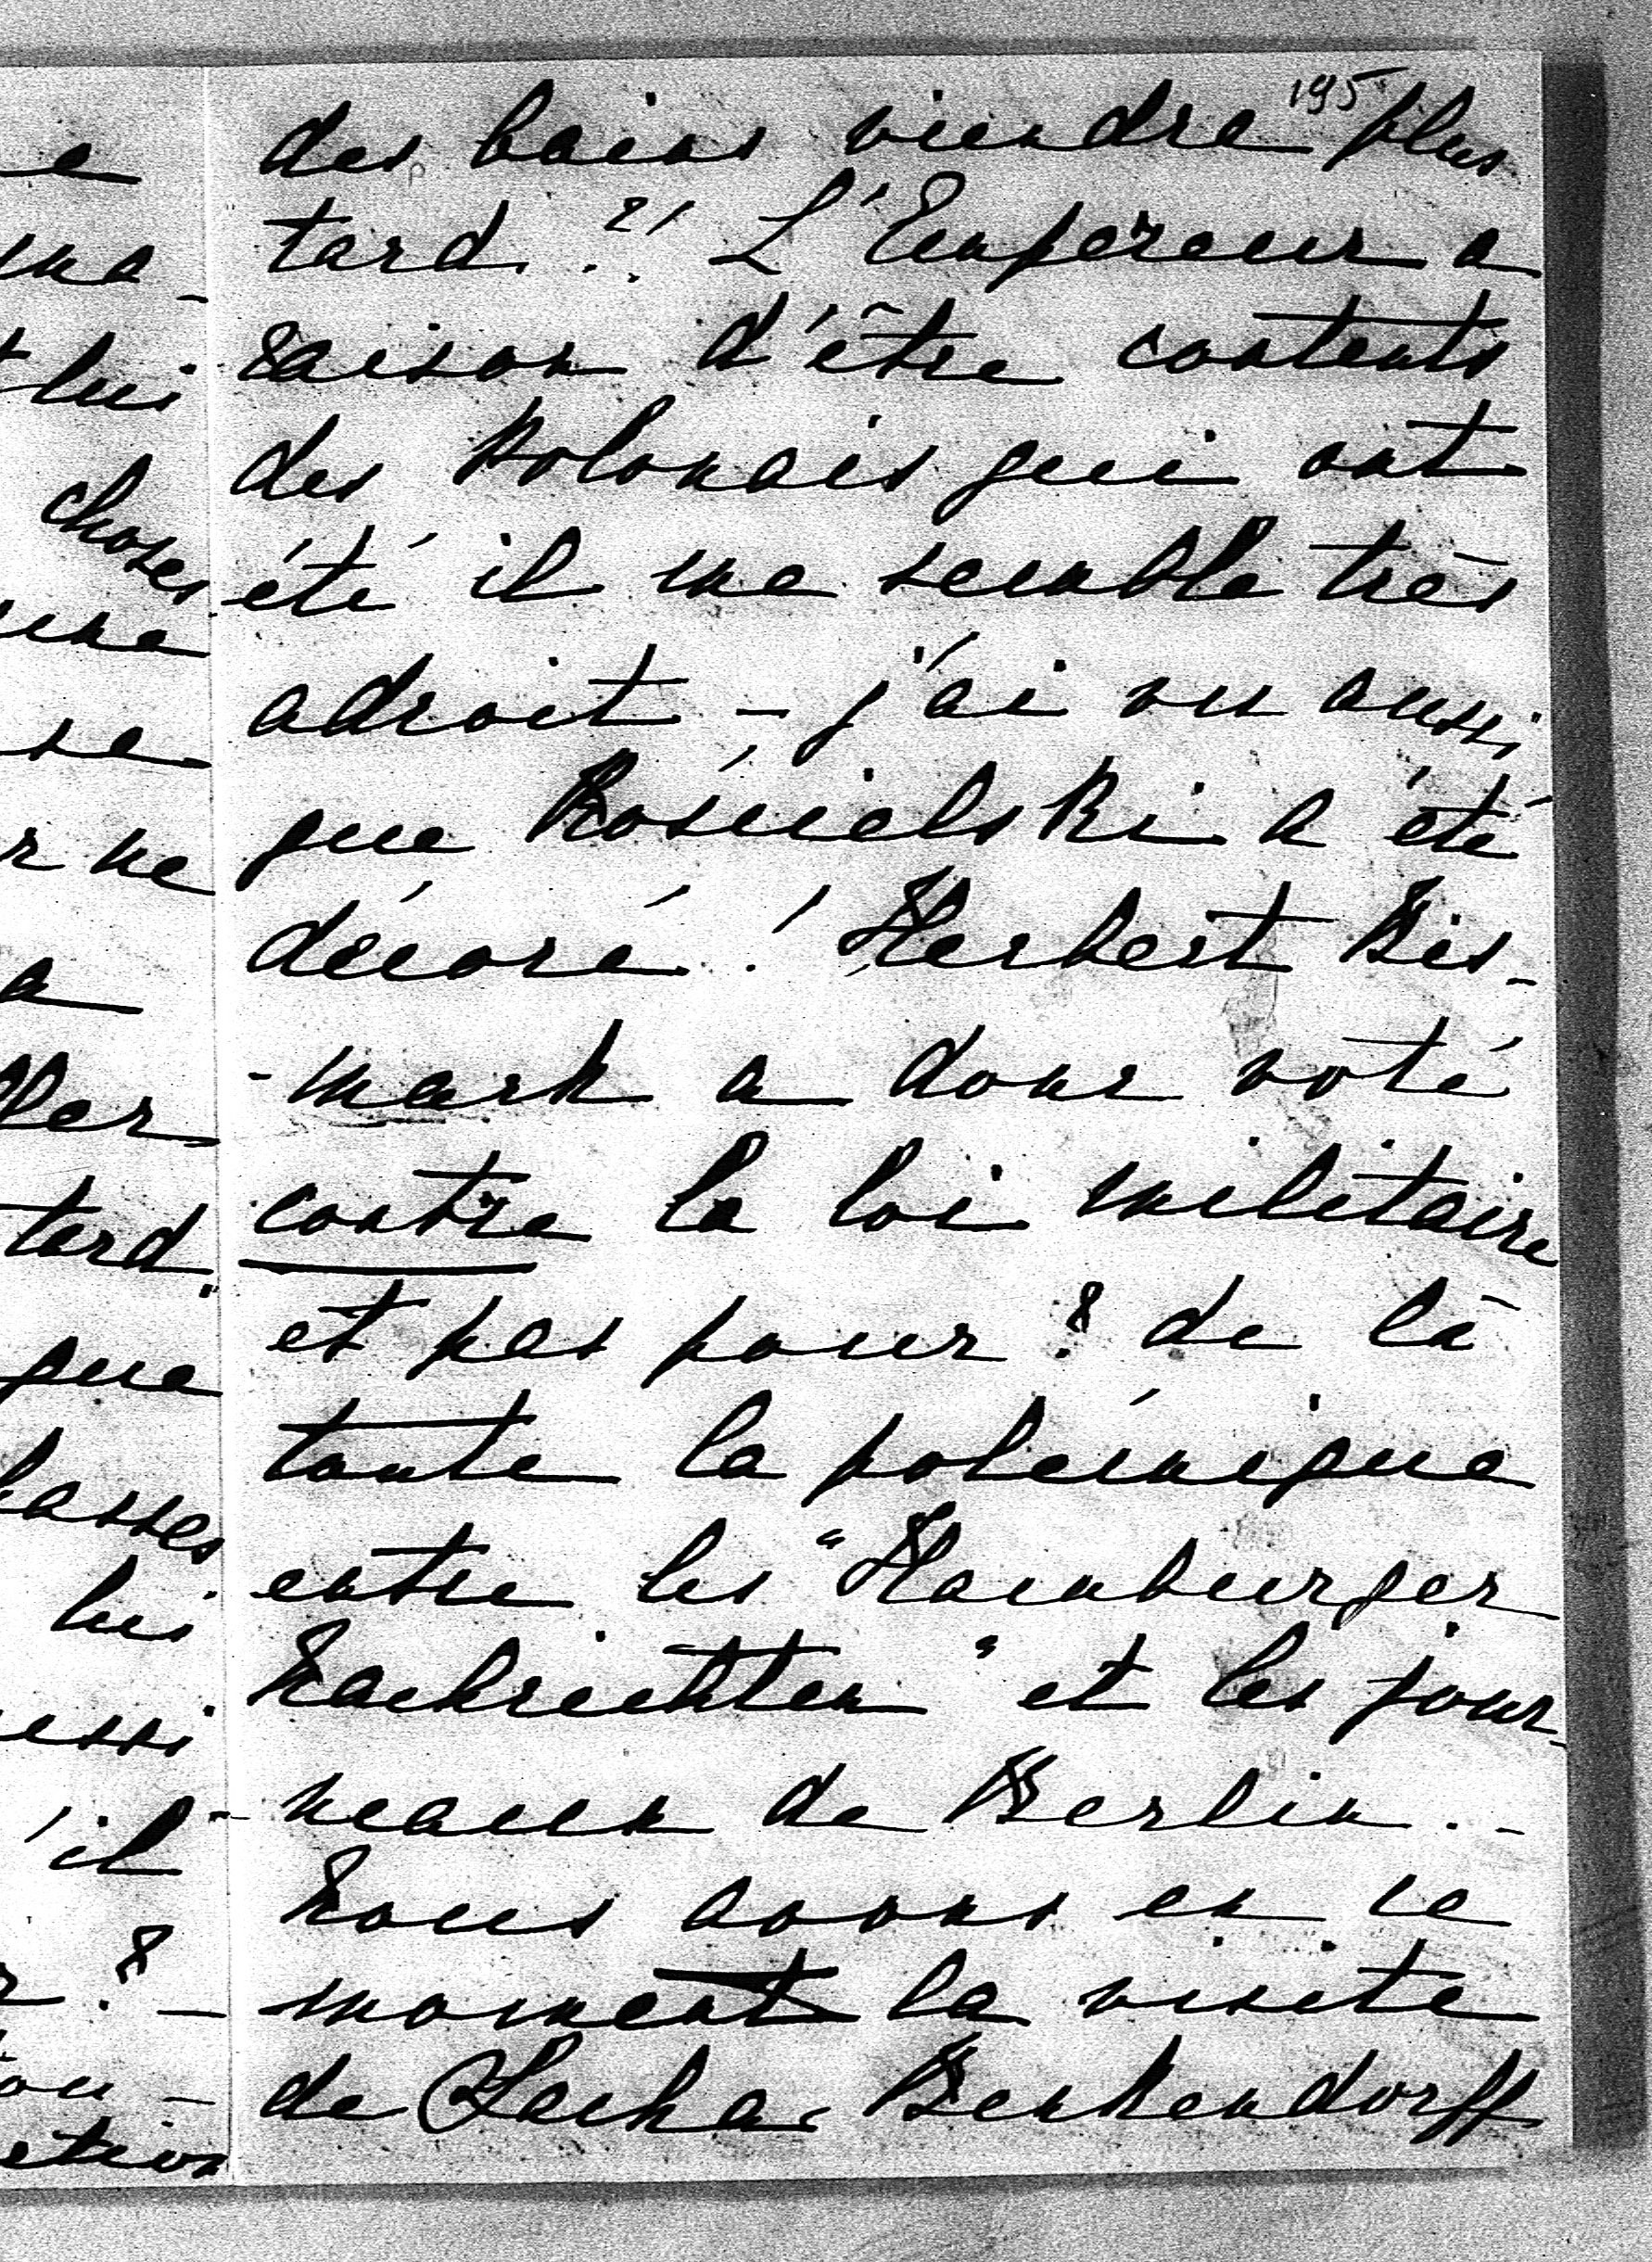 195
des bains viendra plus
tard ?! L'Empereur a
raison d'être contents
des Polonais qui ont
été il me semble très
adroit - j'ai vu aussi
que Koscielski a été
décoré ! Herbert Bis-
-mark a donc voté
contre la loi militaire
et pas pour ? de là
toute la polémique
entre les "Hamburger
Nachrichten" et les jour-
-neaux de Berlin. -
Nous avons en ce
moment la visite
de Sacha Benkendorff
choses
tard.
que
lui
'il